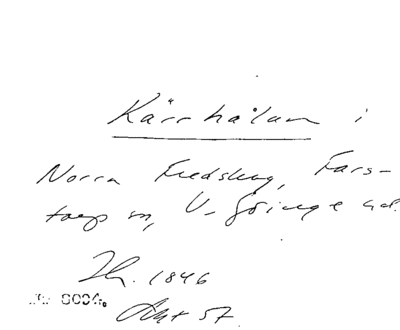 Kärrhålan i
Norra Fredskog, Fars-
torp sn, V. Göinge hd.
1846
0004.
Akt 57